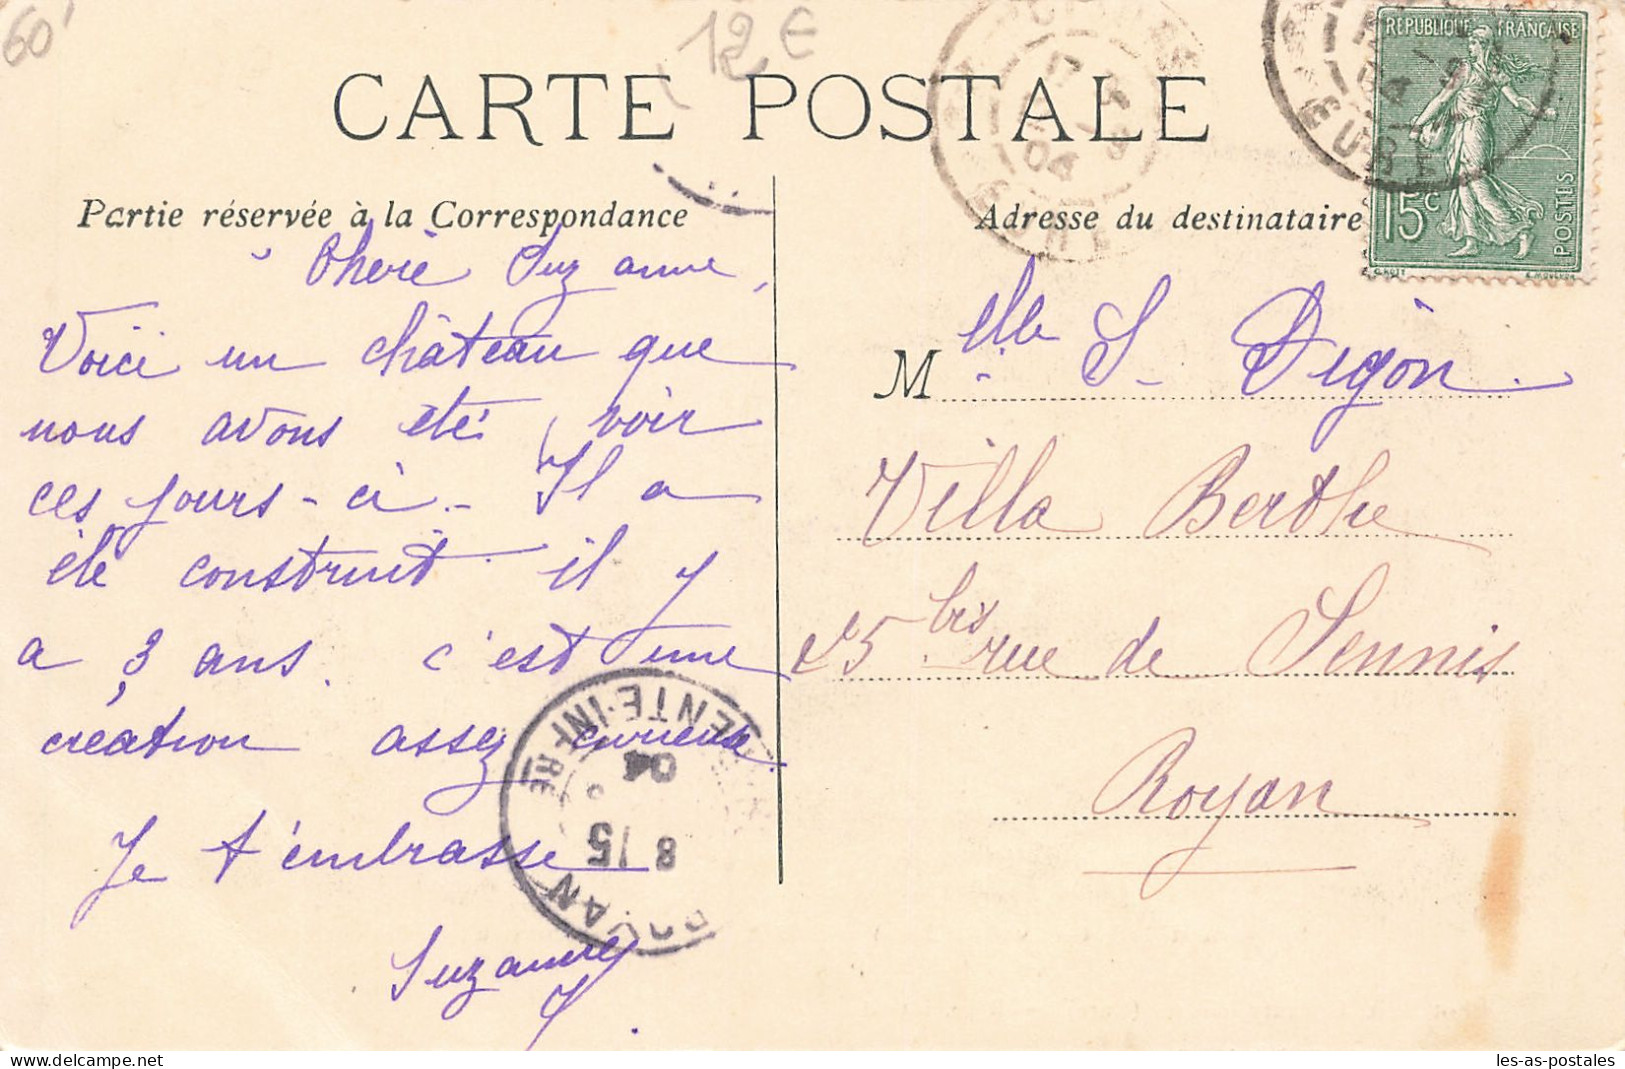 60'
12 €
CARTE POSTALE
Partie réservée à la Correspondance
Adresse du destinataire
REPUBLIQUE FRANÇAISE
15c
POSTES
O. ROTY
E. MOUCHON
EURE
04
Chérie Suzanne,
Voici un château que
nous avons été voir
ces jours-ci - Il a
été construit il y
a 3 ans. c'est une
création assez curieuse.
Je t'embrasse
Suzanne
Mlle S. Digon
Villa Berthe
25 bis rue de Sennis
Royan
ROYAN
8 15
04
ENTE-INFRE
les-as-postales
delcampe.net